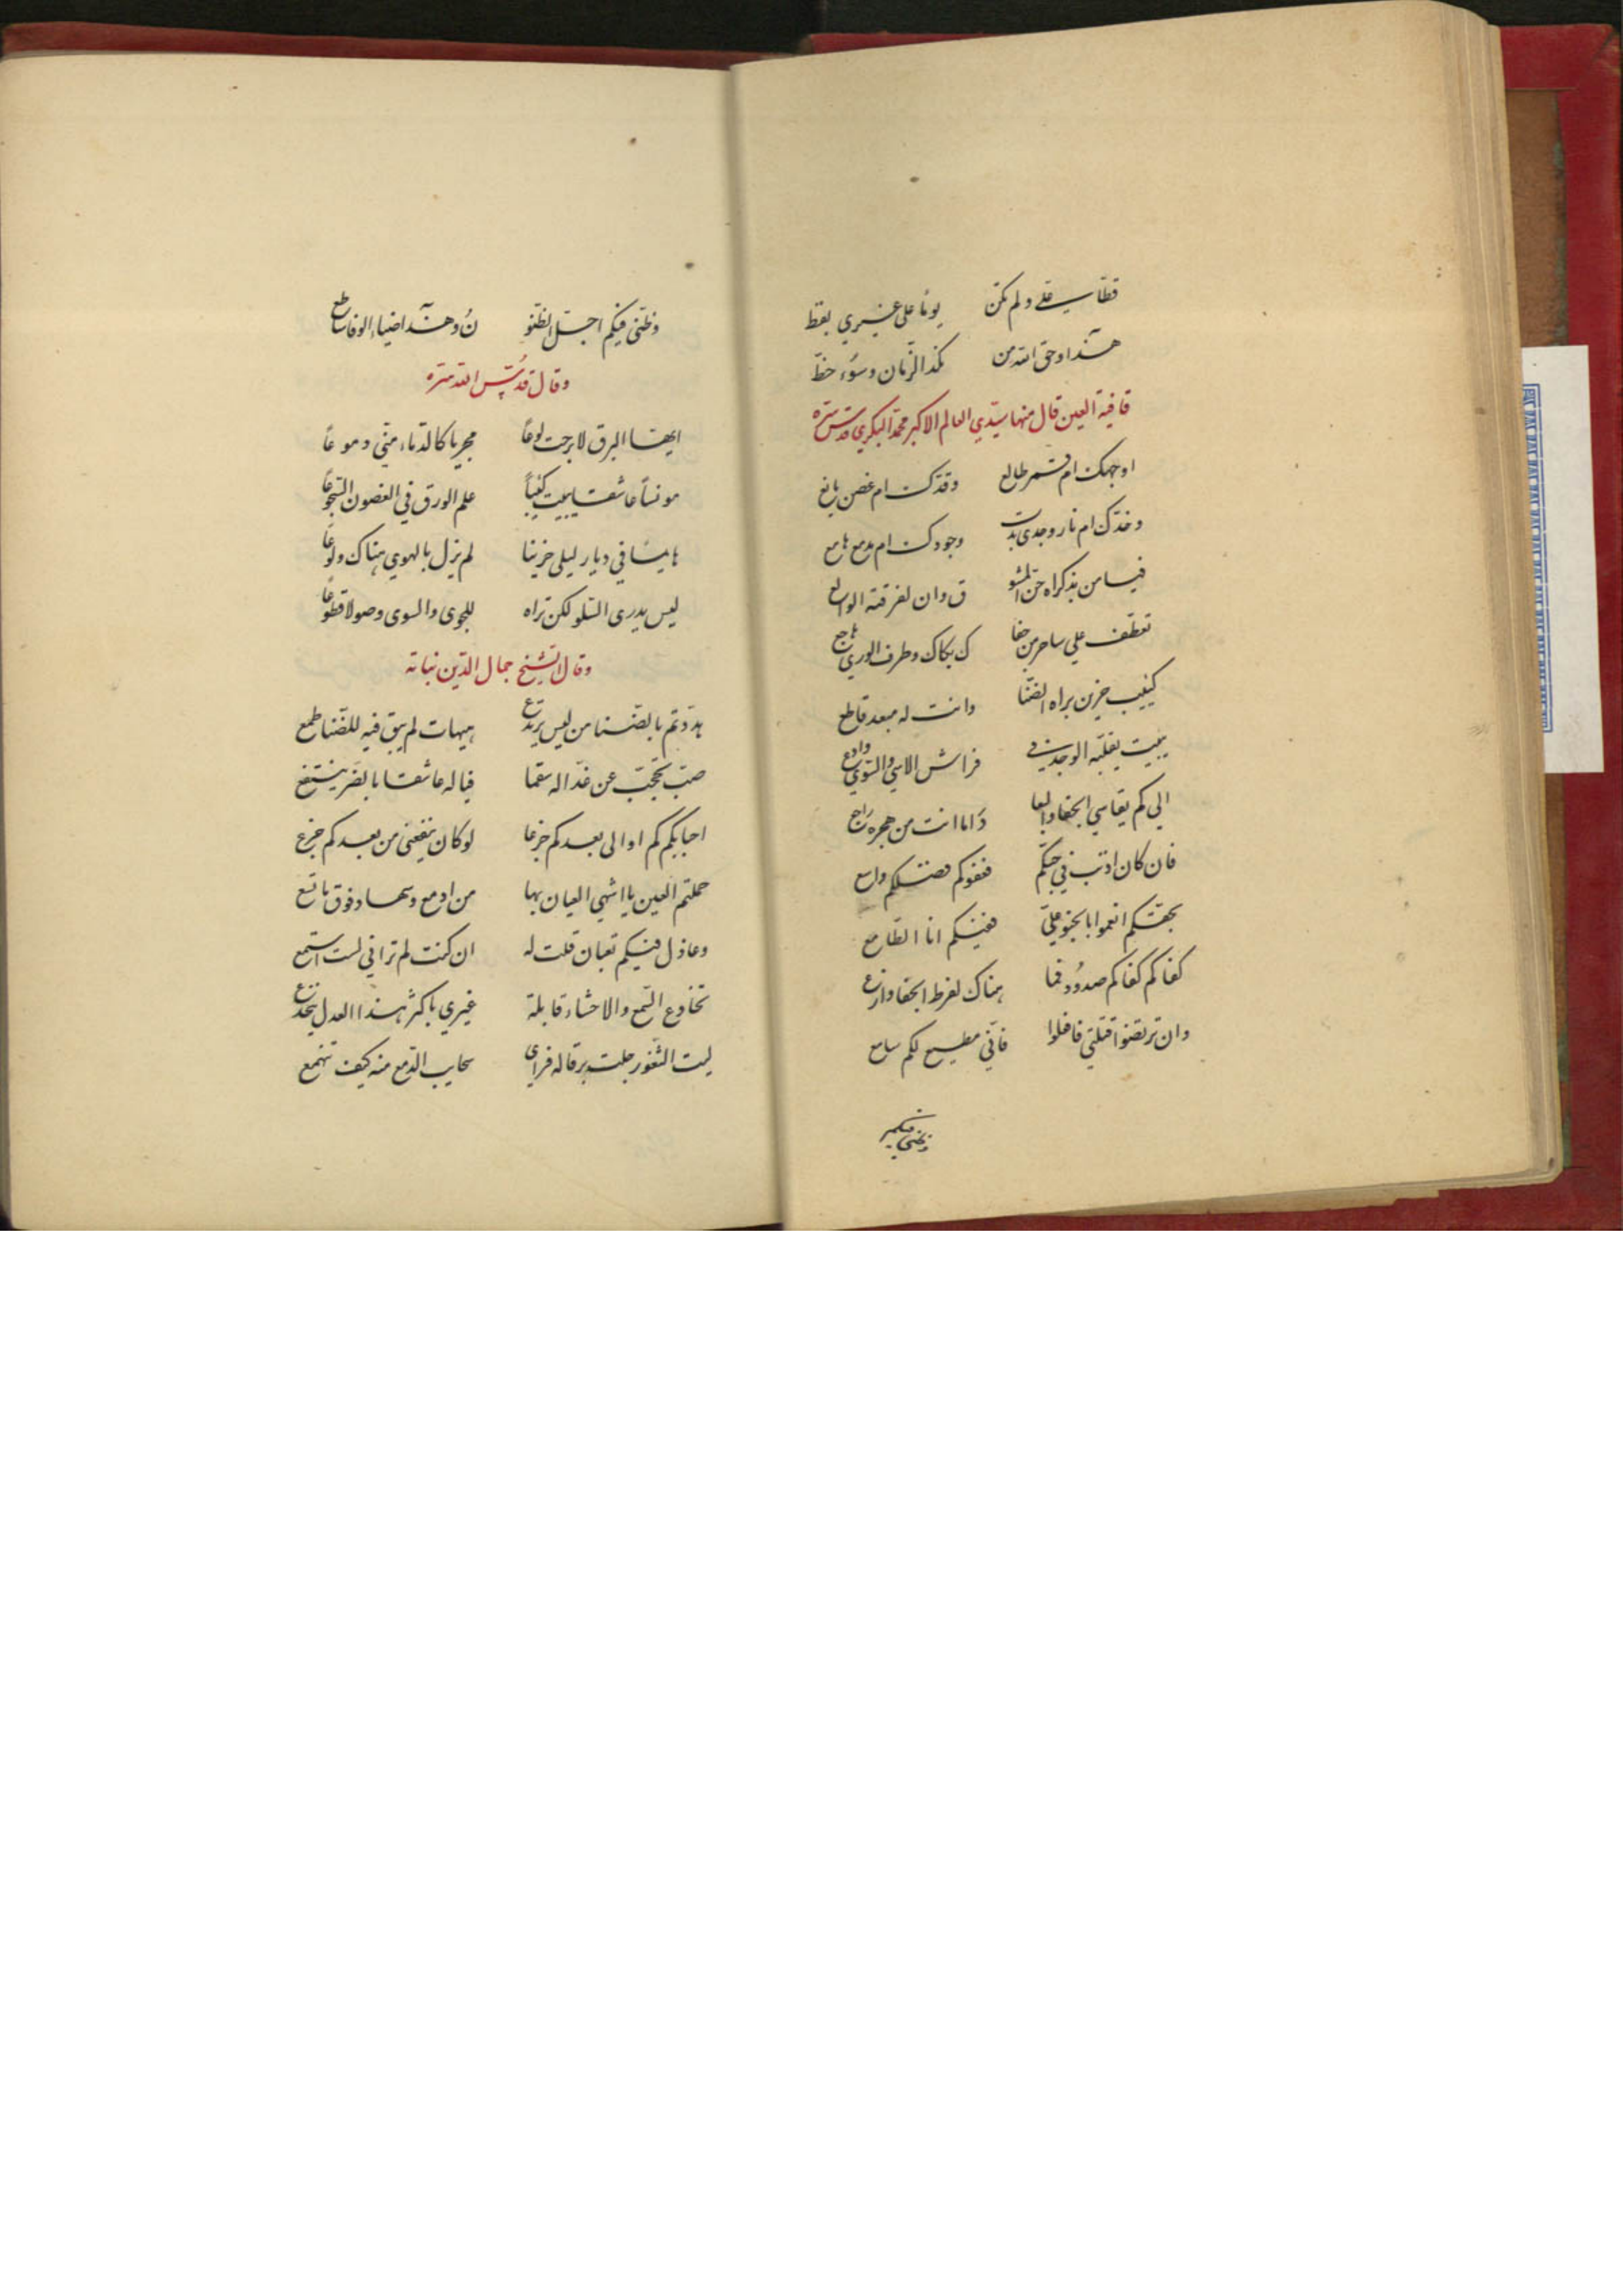 قظا علي ولم تكن يوما على غيري بفظ
هذا وحق الله من نكد الزمان وسوء حظ
قافية العين قال منها سيدي العالم الاكبر محمد البكري قدس سره
اوجهك ام قمر طالع وقدك ام غصن يانع
وخدك ام نار وجدي بدت وجودك ام مدمع هامع
فيا من بذكراه حق الشو ق وان لفرقته الوالع
تعطف علي ساهر من جفا ك بكاك وطرف الوري هاجع
كئيب حزين براه الضنا وانت له مبعد قاطع
يبيت يقلبه الوجد في فراش الاسي والسوي وادع
الي كم يقاسي الجفا والبعا د اما انت من هجره راجع
فان كان اذنب في حبكم فعفوكم فضلكم واسع
بحقكم انعموا بالجنو علي ففيكم انا الطامع
كفاكم كفاكم صدود فما هناك لفرط الجفا وازع
وان ترتضوا قتلتي فافعلوا فاني مطيع لكم سامع
وظني فيكم
وظني فيكم اجل الظنو ن وهذا ضياء الوفا ساطع
وقال قدس الله سره
ايها البرق لا برحت لموعا مجريا كالدماء مني دموعا
مونسا عاشقا يبيت كئيبا علم الورق في الغصون السجوعا
هايما في ديار ليلى حزينا لم يزل بالهوي هناك ولوعا
ليس يدرى السلو لكن تراه للجوى والسوى وصولا قطوعا
وقال الشيخ جمال الدين نباته
هددتم بالضنا من ليس يرتدع هيهات لم يبق فيه للضنا طمع
صب تحجب عن عذاله سقما فيا له عاشقا بالضر ينتفع
احبابكم كم اوالى بعدكم جزعا لو كان ينفعني من بعدكم جزع
حملتم العين يا اشهي العيان بها من ادمع وسهاد فوق ما تسع
وعاذل فيكم تعبان قلت له ان كنت لم تراني لست استمع
تخادع السمع والاحشاء قابلة غيري باكثر هذا العدل ينخدع
ليت الثغور جلت برقا له فراى سحايب الدمع منه كيف تنهمع